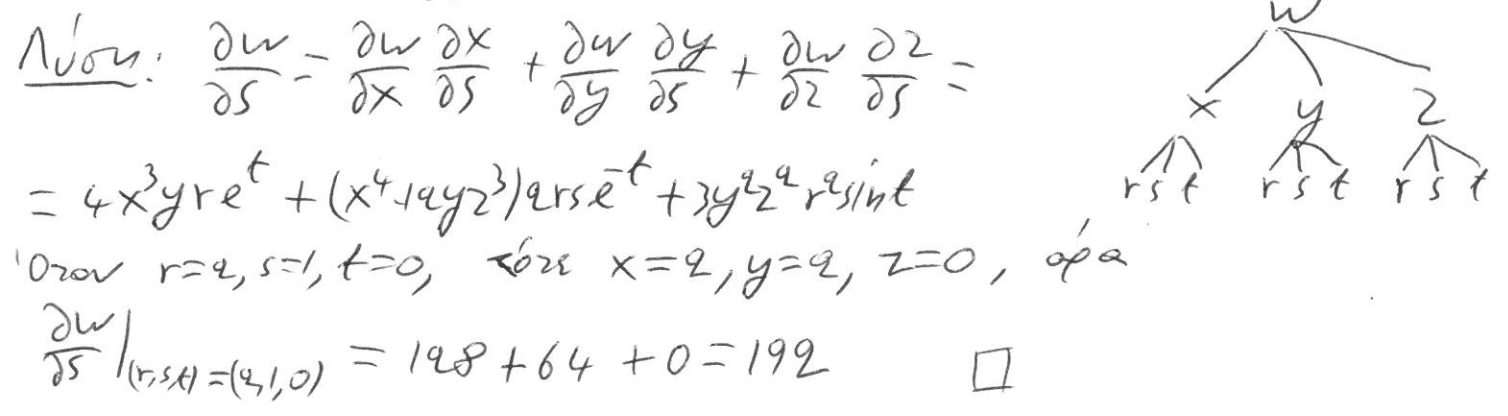 Λύση: ∂w/∂s = ∂w/∂x ∂x/∂s + ∂w/∂y ∂y/∂s + ∂w/∂z ∂z/∂s =
= 4x³yre^t + (x⁴+2yz³)2rse^-t + 3y²z²r²sint
Όταν r=2, s=1, t=0, τότε x=2, y=2, z=0, άρα
∂w/∂s |(r,s,t)=(2,1,0) = 128 + 64 + 0 = 192 □
w
x y z
r s t r s t r s t